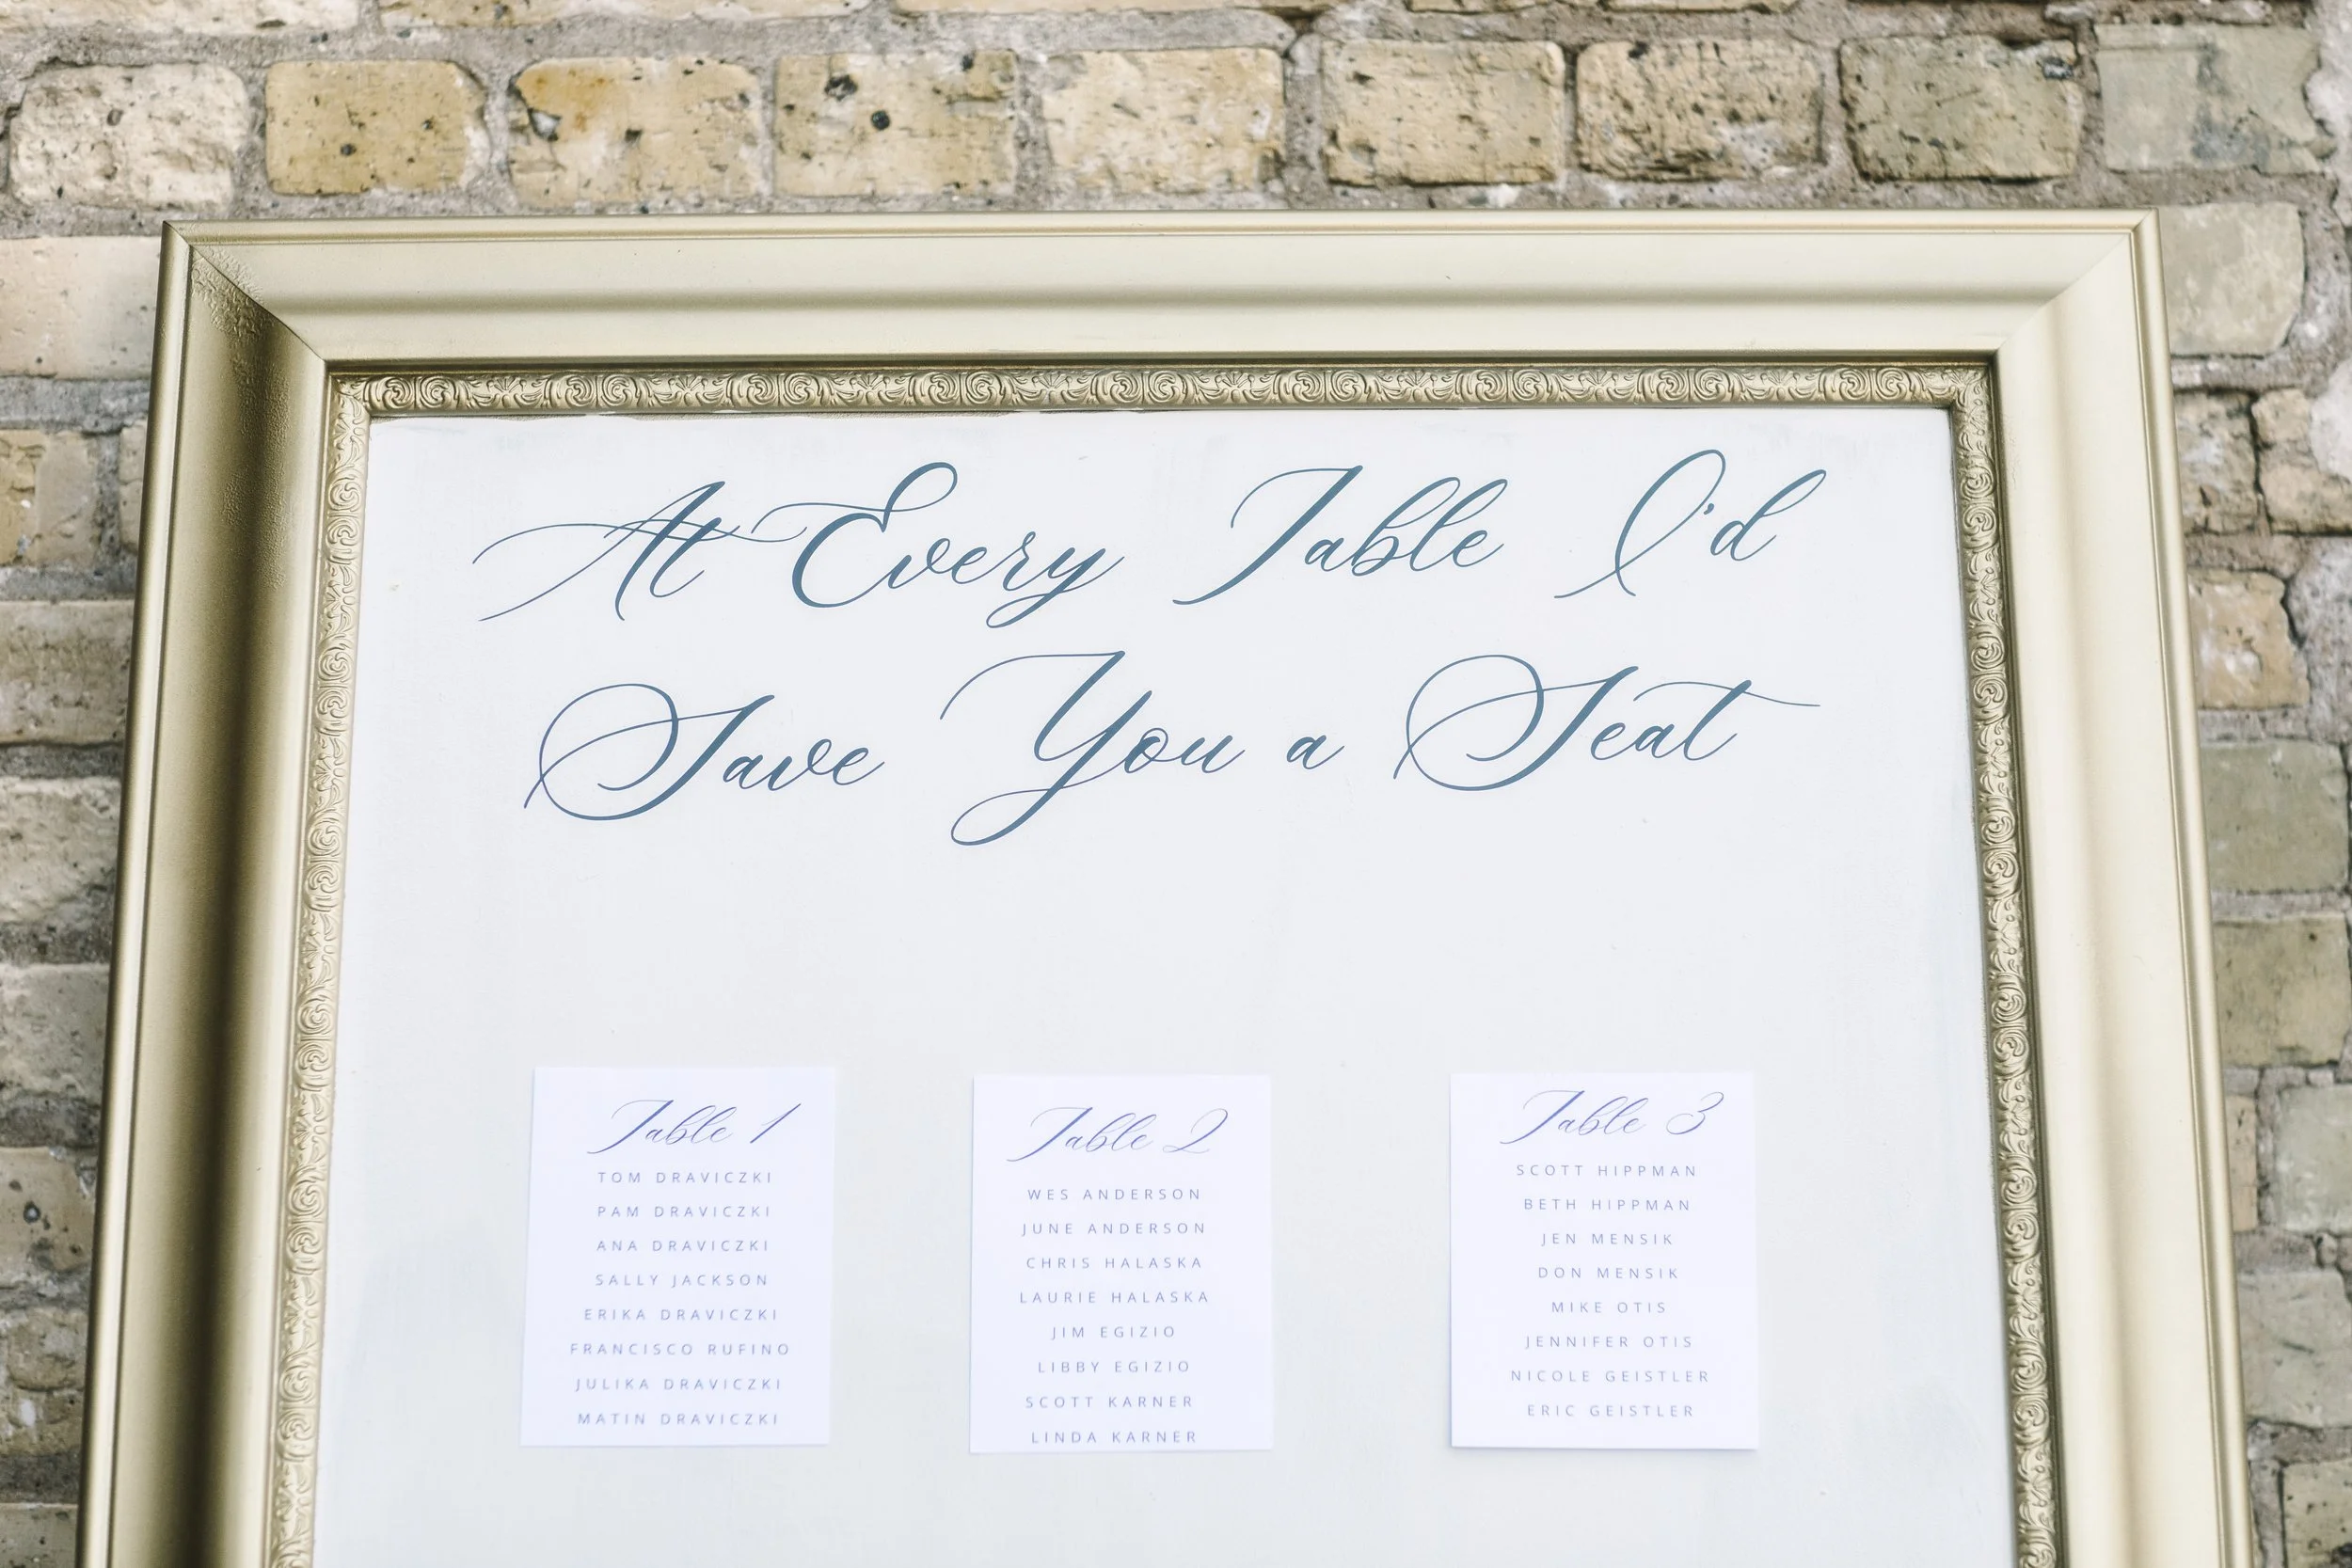 At Every Table I'd
Save You a Seat
Table 1
TOM DRAVICZKI
PAM DRAVICZKI
ANA DRAVICZKI
SALLY JACKSON
ERIKA DRAVICZKI
FRANCISCO RUFINO
JULIKA DRAVICZKI
MATIN DRAVICZKI
Table 2
WES ANDERSON
JUNE ANDERSON
CHRIS HALASKA
LAURIE HALASKA
JIM EGIZIO
LIBBY EGIZIO
SCOTT KARNER
LINDA KARNER
Table 3
SCOTT HIPPMAN
BETH HIPPMAN
JEN MENSIK
DON MENSIK
MIKE OTIS
JENNIFER OTIS
NICOLE GEISTLER
ERIC GEISTLER